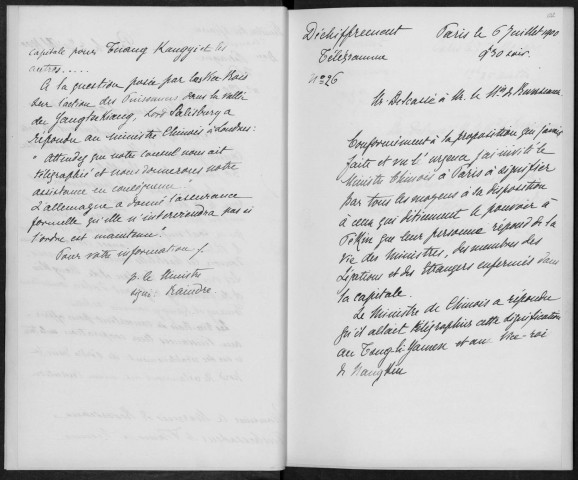 capitale pour Tuang Kangyi et les
autres.....
A la question posée par les Vce Rois
sur l'action des Puissances dans la vallée
du Yangtsekiang, Lord Salisbury a
répondu au ministre Chinois à Londres:
"Attendez que notre consul nous ait
télégraphié et nous donnerons notre
assistance en conséquence".
L'allemagne a donné l'assurance
formelle qu'elle n'interviendra pas si
l'ordre est maintenu.
Pour votre information /.
p. le Ministre
signé: Raindre.
Déchiffrement
Paris le 6 Juillet 1900
Télégramme
9h30 soir.
N° 326
Mr. Delcassé à Mr. le
Conformément à la proposition que j'avais
faite et vu l'urgence j'ai invité le
Ministre Chinois à Paris à signifier
par tous les moyens à la disposition
à ceux qui détiennent le pouvoir à
Pékin que leur personne répond de la
vie des Ministres, des membres des
Légations et des Etrangers enfermés dans
la capitale.
Le Ministre de Chinois a répondu
qu'il allait télégraphier cette signification
au Tsong-li-Yamen et au Vice-roi
de Nang Kin